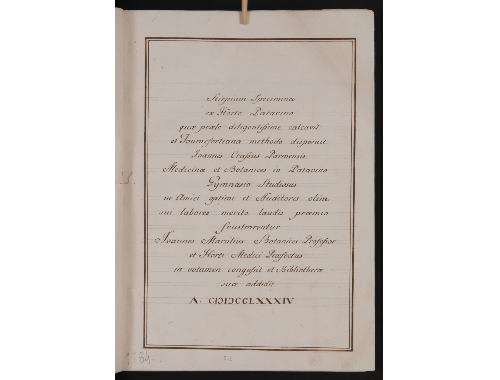 Stirpium Specimina
ex Horto Patavino
quæ prælo diligentissime calcavit
et Tournefortiana methodo disposuit
Ioannes Crassus Parmensis
Medicinæ et Botanices in Patavino
Gymnasio Studiosus
ne Amici optimi et Auditoris olim
sui labores merito laudis præmio
frustrarentur
Ioannes Marsilius Botanices Professor
et Horti Medici Præfectus
in volumen congessit et Bibliothecæ
suæ addidit
A. CIƆIƆCCLXXXIV